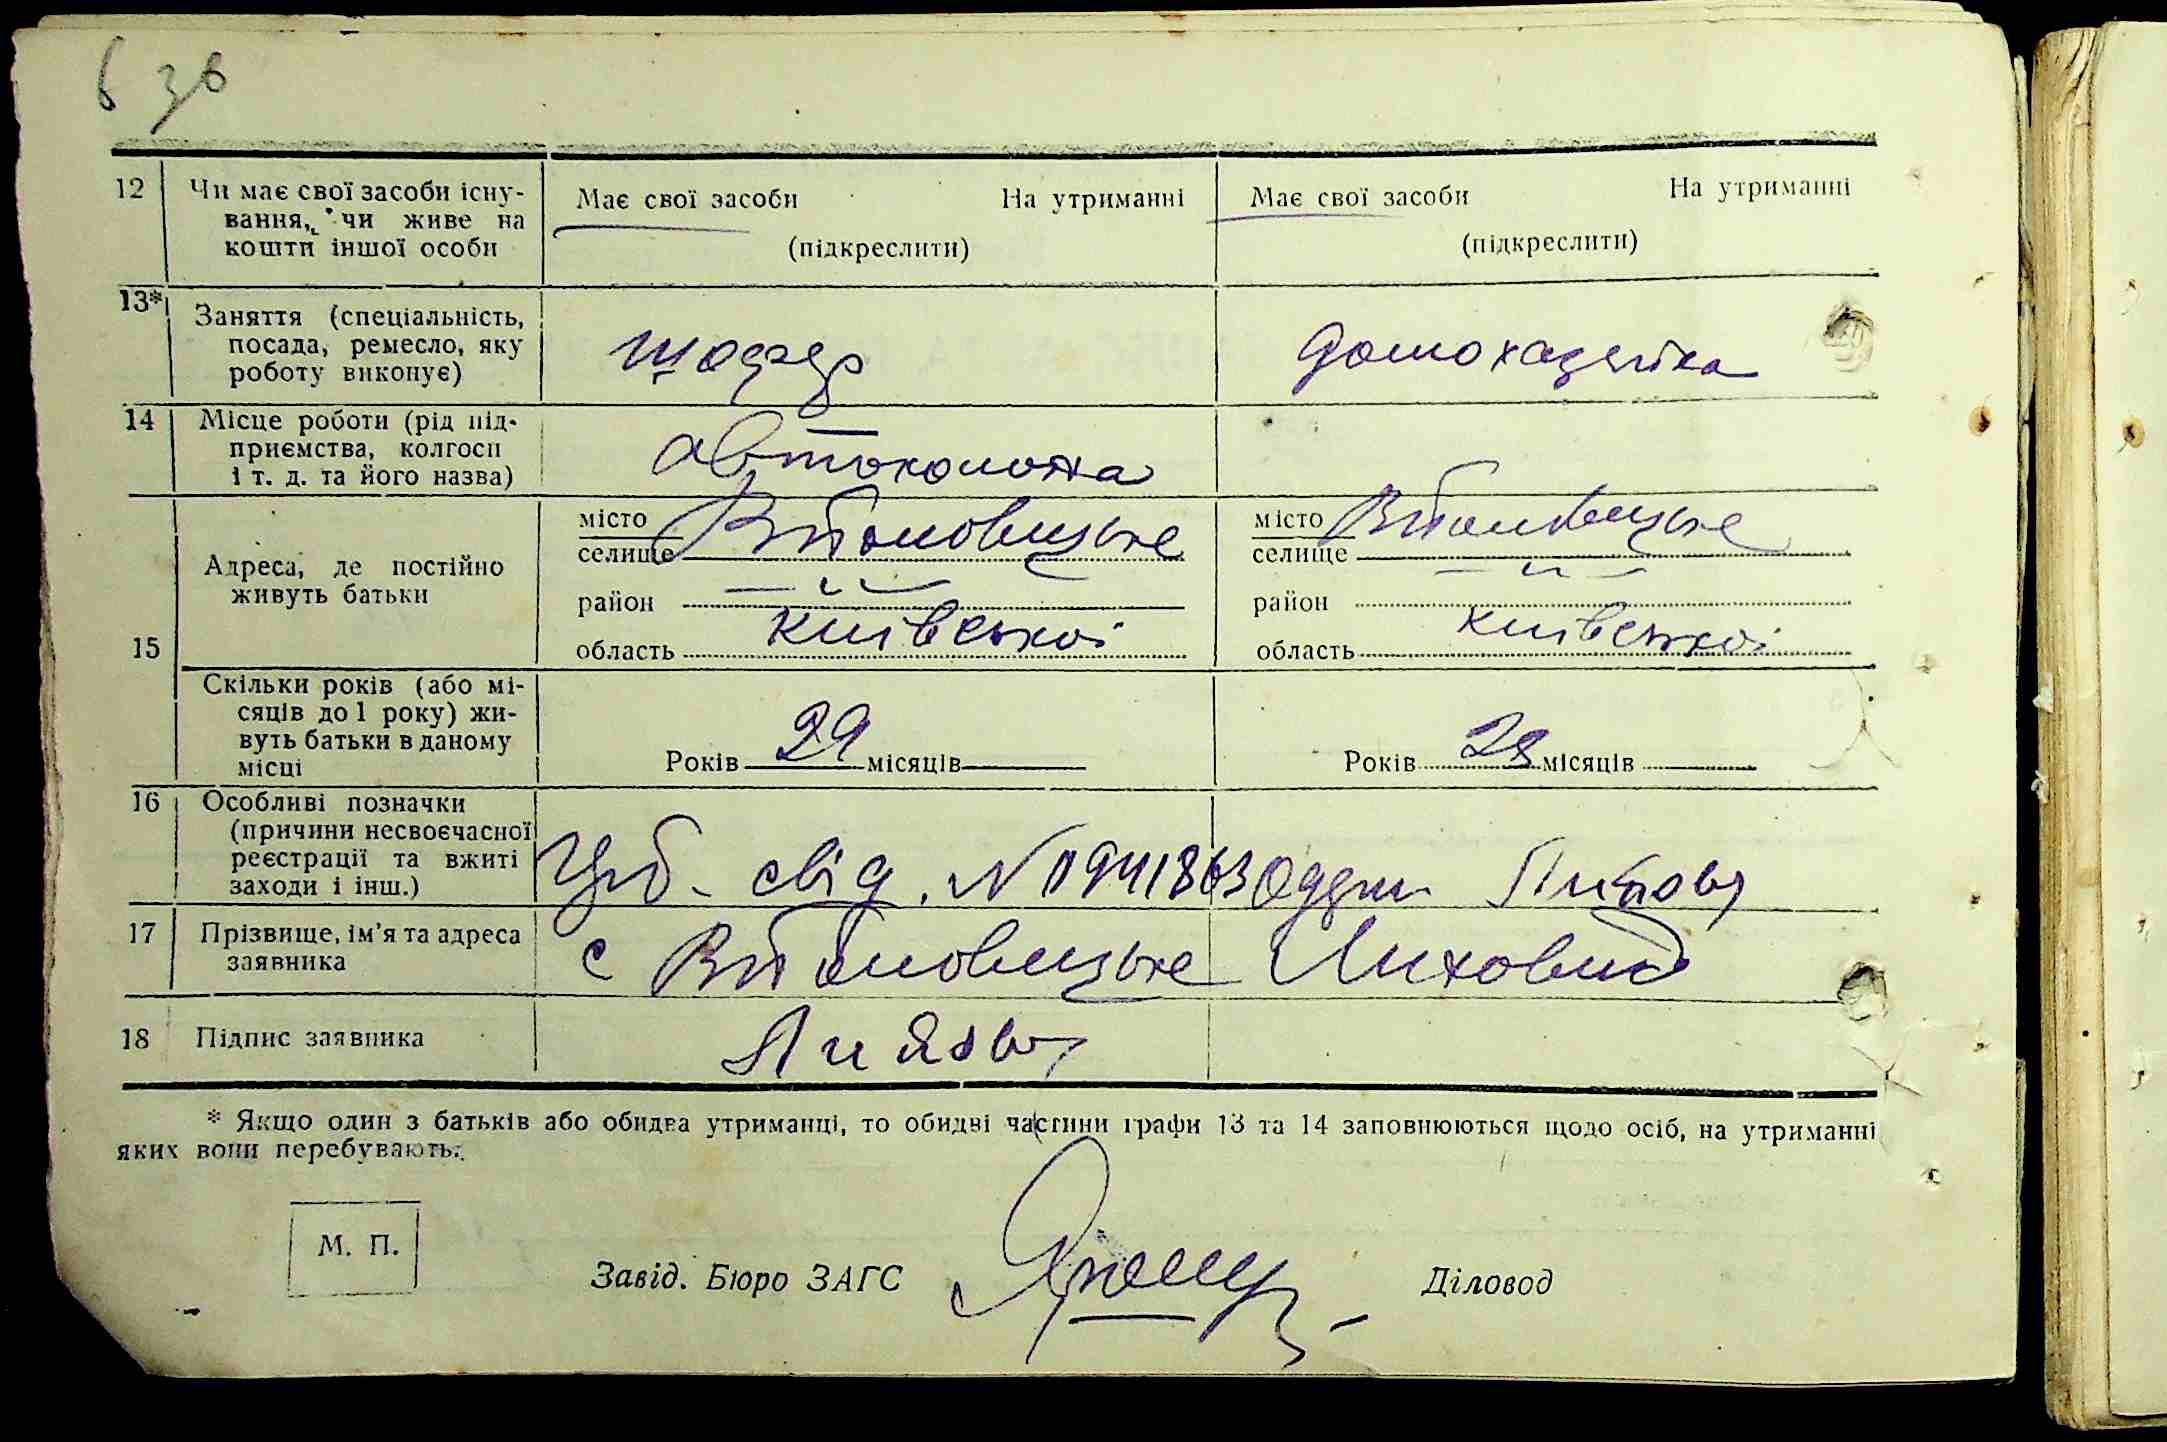 6 зв
12 Чи має свої засоби існу- Має свої засоби На утриманні Має свої засоби На утриманні
вання, чи живе на
кошти іншої особи (підкреслити) (підкреслити)
13* Заняття (спеціальність,
посада, ремесло, яку шофер домохазяйка
роботу виконує)
14 Місце роботи (рід під-
приємства, колгосп автоколона
і т. д. та його назва)
15 Адреса, де постійно живуть батьки
місто
селище
район — " —
область київської
місто
селище
район — " —
область київської
Скільки років (або мі-
сяців до 1 року) жи-
вуть батьки в даному
місці
Років 29 місяців Років 28 місяців
16 Особливі позначки
(причини несвоєчасної
реєстрації та вжиті
заходи і інш.)
свід. №
17 Прізвище, ім'я та адреса
заявника
с Лиховид
18 Підпис заявника
* Якщо один з батьків або обидва утриманці, то обидві частини графи 13 та 14 заповнюються щодо осіб, на утриманні
яких вони перебувають.
М. П.
Завід. Бюро ЗАГС Діловод